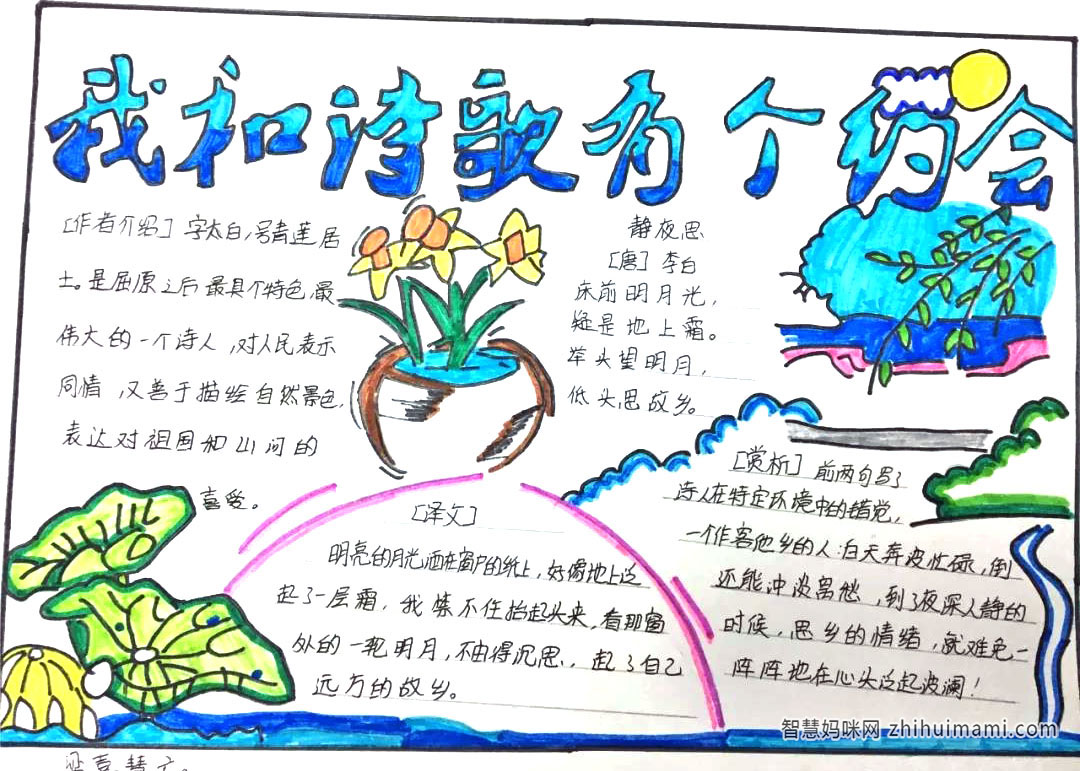 我和诗歌有个约会
[作者介绍] 字太白,号青莲居
士。是屈原之后最具个特色,最
伟大的一个诗人,对人民表示
同情,又善于描绘自然景色,
表达对祖国和山河的
喜爱。
静夜思
[唐] 李白
床前明月光,
疑是地上霜。
举头望明月,
低头思故乡。
[译文]
明亮的月光洒在窗户的纸上,好像地上泛
起了一层霜,我禁不住抬起头来,看那窗
外的一轮明月,不由得沉思,起了自己
远方的故乡。
[赏析] 前两句写了
诗人在特定环境中的错觉,
一个作客他乡的人:白天奔波忙碌,倒
还能冲淡离愁,到了夜深人静的
时候,思乡的情绪,就难免一
阵阵地在心头泛起波澜!
智慧妈咪网 zhihuimami.com